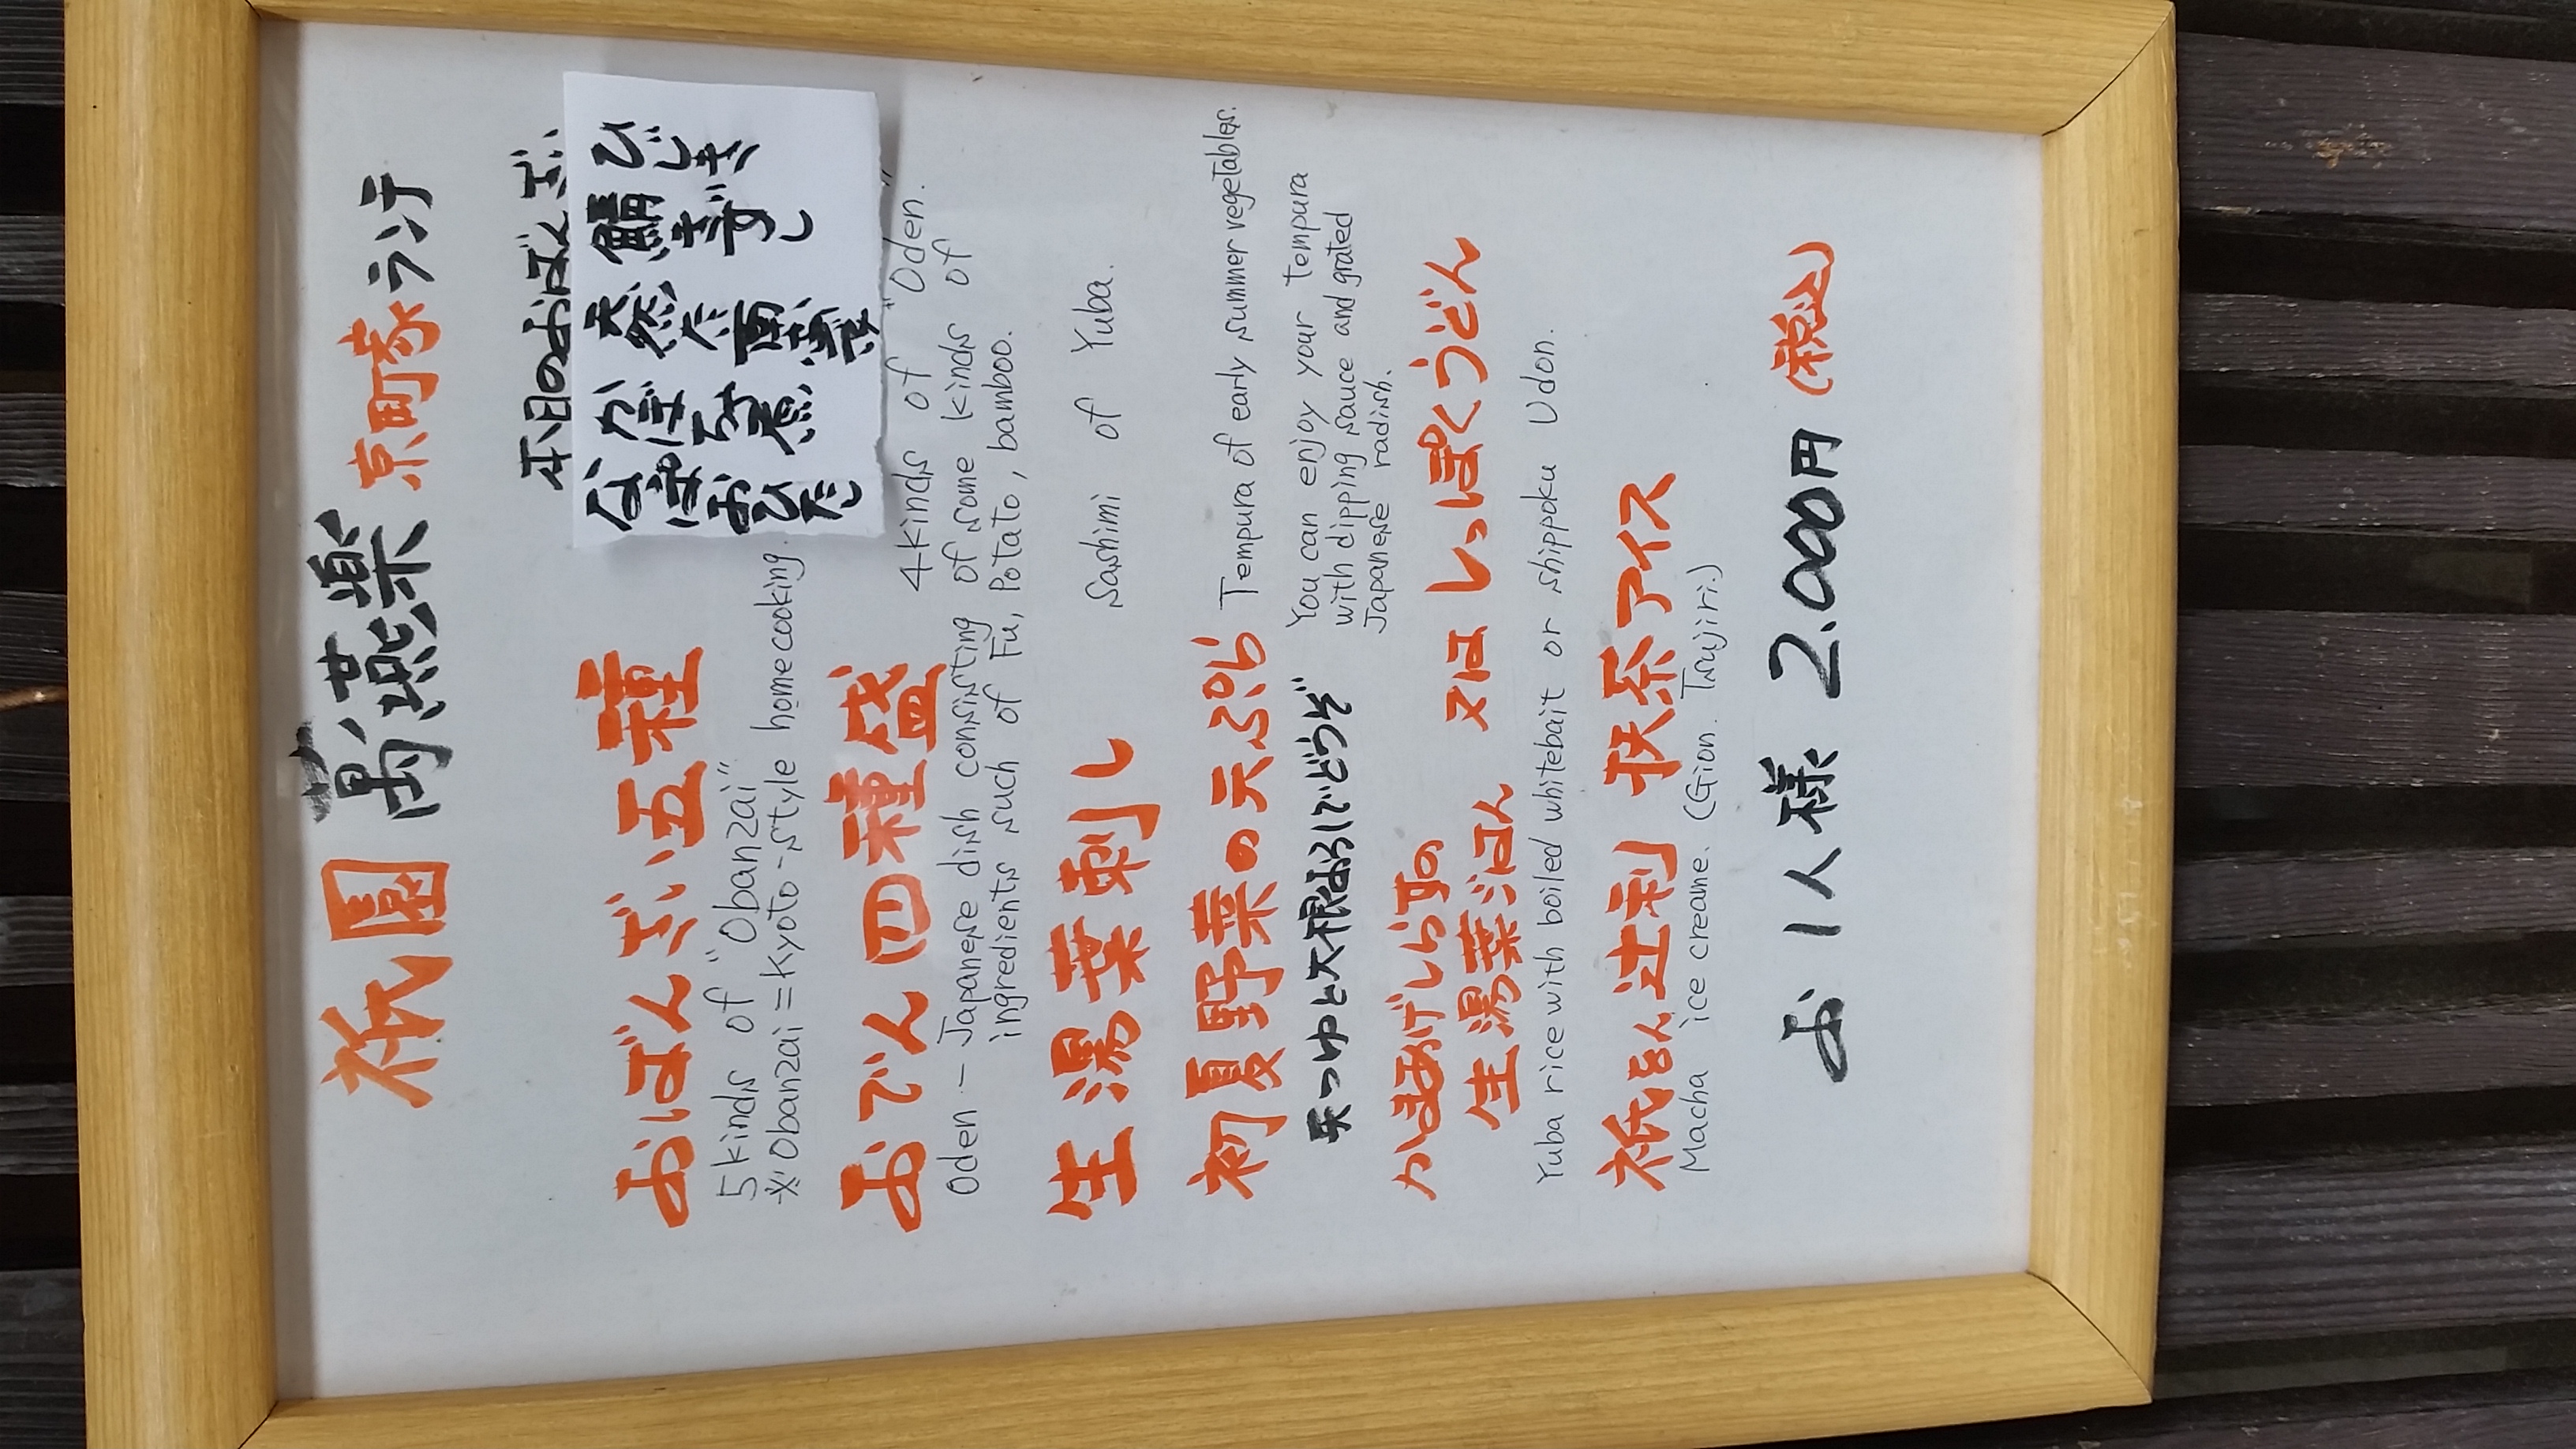 祇園 萬燕樂 京町家ランチ
本日のおばんざい
ひじき
鯖きずし
天然ぶた西京漬
なばなおひたし
おばんざい五種
5 kinds of "Obanzai"
※Obanzai = Kyoto-style homecooking.
おでん四種盛
4 kinds of "Oden."
Oden - Japanese dish consisting of some kinds of
ingredients such of Fu, Potato, bamboo.
生湯葉刺し
Sashimi of Yuba.
初夏野菜の天ぷら
Tempura of early summer vegetables.
天つゆと大根おろしでどうぞ
You can enjoy your tempura
with dipping sauce and grated
Japanese radish.
かまあげしらすの
生湯葉ごはん 又は しっぽくうどん
Yuba rice with boiled whitebait or shippoku Udon.
祇をん辻利 抹茶アイス
Macha ice creame. (Gion. Tsujiri.)
お1人様 2.000円 (税込)